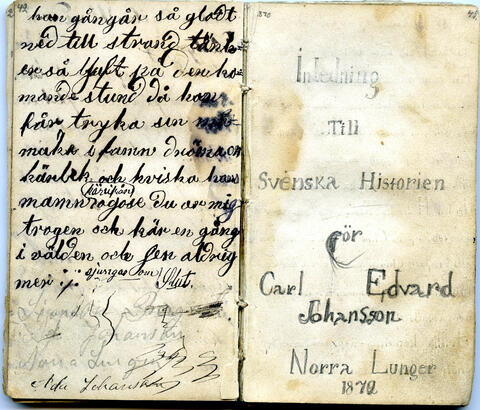 han gångån så gladt
ned till strand tänk
en så ljuft på den ko
mande stund då han
får tryka sin
maka i famn dröma om
kärlek och hviska hans
mamn du är mig
trogen och kär en gång
i välden och sen aldrig
mer sjungas som Slut.
Johansson
Ada Johansson
1870
Inledning
Till
Svenska Historien
för
Carl Edvard
Johansson
Norra Lunger
1872